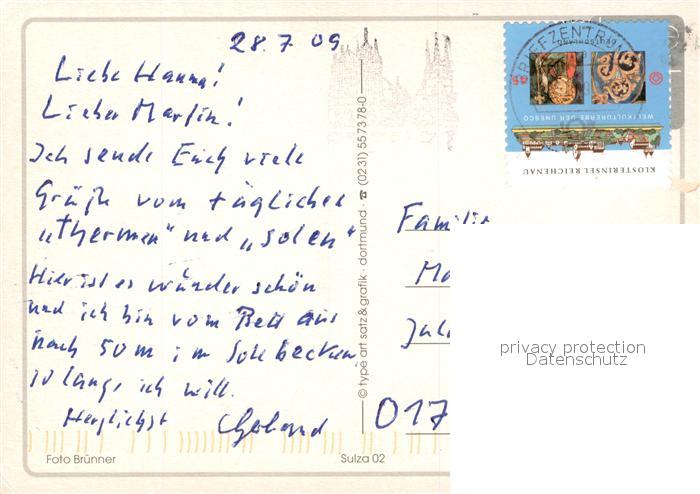 28.7.09
Liebe Hanna!
Lieber Martin!
Ich sende Euch viele
Grüße vom täglichen
„Thermen" und „Solen"
Hier ist es wunderschön
und ich bin vom Bett aus
nach 50m im Solebecken,
so lange ich will.
Herzlichst
Foto Brünner
Sulza 02
© type art satz & grafik · dortmund ☎ (0231) 557378-0
BRIEFZENTRUM
DEUTSCHLAND
45
WELTKULTURERBE DER UNESCO
KLOSTERINSEL REICHENAU
Familie
Ma
Jul
017
privacy protection
Datenschutz